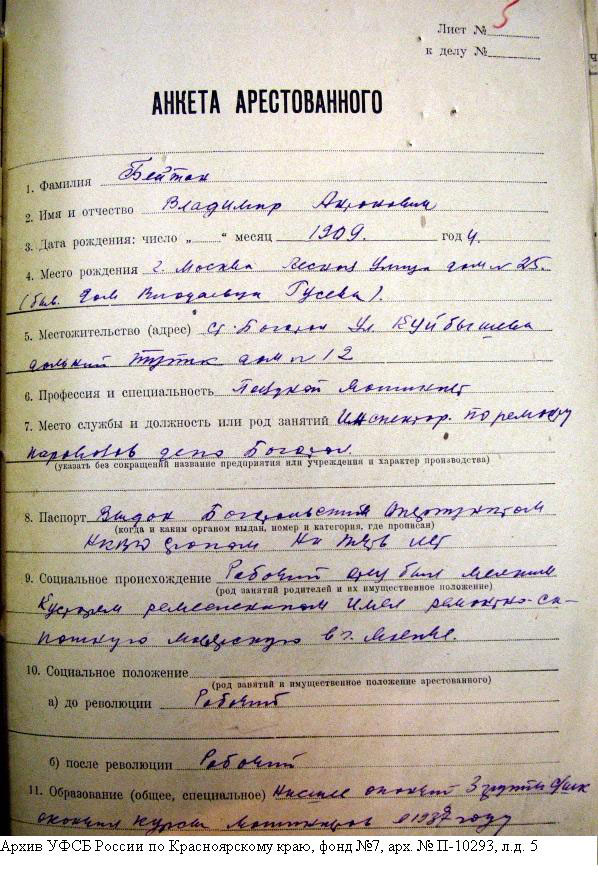 Лист № 5
к делу №
АНКЕТА АРЕСТОВАННОГО
1. Фамилия Бейтан
2. Имя и отчество Владимир Антонович
3. Дата рождения: число „ “ месяц 1909. год
4. Место рождения г. Москва Лесная улица дом № 25.
(быв. дом Владельца Гусева).
5. Местожительство (адрес) ст. Боготол ул Куйбышева
тупик дом № 12
6. Профессия и специальность Машинист
7. Место службы и должность или род занятий Инспектор. по ремонту
паровозов депо Боготол
(указать без сокращений название предприятия или учреждения и характер производства)
8. Паспорт Выдан Боготольским
(когда и каким органом выдан, номер и категория, где прописан)
НКВД на пять лет
9. Социальное происхождение Рабочий отец был мелким
(род занятий родителей и их имущественное положение)
Кустарем ремесленником имел ремонтно-са-
пожную мастерскую в г. Москве.
10. Социальное положение
(род занятий и имущественное положение арестованного)
а) до революции Рабочий
б) после революции Рабочий
11. Образование (общее, специальное) Низшее окончил 3 группы
окончил курсы машинистов в 1937 году
Архив УФСБ России по Красноярскому краю, фонд №7, арх. № П-10293, л.д. 5